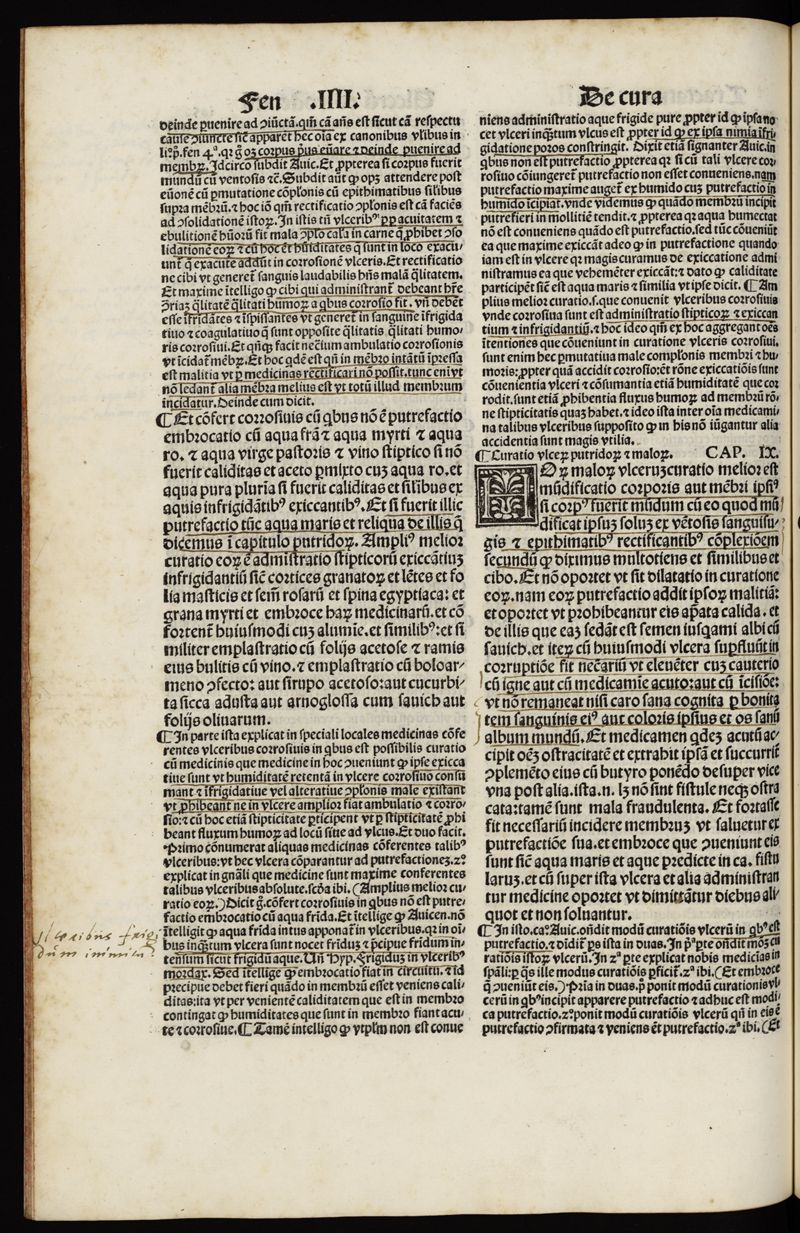 Fen .IIII.
De cura
deinde ꝑuenire ad ɔiūctā.qm̄ cā añs est sicut cā respectu
cause ɔiuncte sic̄ apparēt hec oīa ex canonibus vlibus in
li⁹.p̄.fen 4ᵃ.qꝛ ꝙ oꝫ corpus pus euare ⁊ deinde ꝑuenire ad
membꝝ.Idcirco subdit Auic.Et ꝓpterea si corpus fuerit
mundū cū ventosis ⁊c̄.Subdit aūt ꝙ opꝫ attendere post
euōnē cū ꝑmutatione cōplōnis cū epithimatibus silibus
supra mēbrū.⁊ hoc iō qm̄ rectificatio ɔplōnis est cā faciēs
ad ɔsolidationē istoꝝ.In istis tn̄ vlcerib⁹ ꝓp acuitatem ⁊
ebulitionē hūorū fit mala ɔplo cal̄a in carne q̄ ꝓhibet ɔso
lidationē eoꝝ ⁊ cū hoc ēt hūiditates q̄ sunt in loco exacu/
unt̄ q̄ exacute addūt in corrosionē vlceris.Et rectificatio
ne cibi vt generet̄ sanguis laudabilis hn̄s malā q̄litatem.
Et maxime ītelligo ꝙ cibi qui administrant̄ debeant hr̄e
ɔriaꝫ q̄litatē q̄litati humoꝝ a qbus corrosio fit. vn̄ debēt
esse īfridātes ⁊ īspissantes vt generet̄ in sanguine īfrigida
tiuo ⁊ coagulatiuo q̄ sunt opposite q̄litatis q̄litati humo/
ris corrosiui.Et qn̄qꝫ facit necīum ambulatio corrosionis
vt īcidat̄ mēbꝝ.Et hoc qdē est qn̄ in mēbro intātū īpressa
est malitia vt ꝑ medicinas rectificari nō possit.tunc eni vt
nō ledant̄ alia mēbra melius est vt totū illud membrum
incidatur.Deinde cum dicit.
¶Et cōfert corrosiuis cū qbus nō ē putrefactio
embrocatio cū aqua frā ⁊ aqua myrti ⁊ aqua
ro. ⁊ aqua virge pastoris ⁊ vino stiptico si nō
fuerit caliditas et aceto ꝑmixto cuꝫ aqua ro.et
aqua pura pluria si fuerit caliditas et silibus ex
aquis infrigidātib⁹ exiccantib⁹.Et si fuerit illic
putrefactio tūc aqua maris et reliqua de illis q̄
dicemus ī capitulo putridoꝝ. Ampli⁹ melior
curatio eoꝝ ē admīstratio stipticorū exiccātiuꝫ
infrigidantiū sic̄ cortices granatoꝝ et lētes et fo
lia masticis et sem̄ rosarū et spina egyptiaca: et
grana myrti et embroce haꝝ medicinarū.et cō
fortent̄ huiusmodi cuꝫ alumie.et similib⁹:et si
militer emplastratio cū folijs acetose ⁊ ramis
eius bulitis cū vino.⁊ emplastratio cū boloar/
meno ɔfecto: aut sirupo acetoso:aut cucurbi/
ta sicca adusta aut arnoglossa cum sauich aut
folijs oliuarum.
¶In parte ista explicat in speciali locales medicinas cōfe
rentes vlceribus corrosiuis in qbus est possibilis curatio
cū medicinis que medicine in hoc ɔueniunt ꝙ ipse exicca
tiue sunt vt humiditatē retentā in vlcere corrosiuo consu
mant ⁊ īfrigidatiue vel alteratiue ɔplonis male existant
vt ꝓhibeant ne in vlcere amplior fiat ambulatio ⁊ corro/
sio:⁊ cū hoc etiā stipticitate ꝑticipent vt ꝑ stipticitatē ꝓhi
beant fluxum humoꝝ ad locū siue ad vlcus.Et duo facit.
Primo cōnumerat aliquas medicinas cōferentes talib⁹
vlceribus:vt hec vlcera cōparantur ad putrefactioneꝫ.z⁰.
explicat in gn̄ali que medicine sunt maxime conferentes
talibus vlceribus absolute.scd̄a ibi.(Amplius melior cu/
ratio eoꝝ.)Dicit ḡ.cōfert corrosiuis in qbus nō est putre/
factio embrocatio cū aqua frīda.Et ītellige ꝙ Auicen.nō
ītelligit ꝙ aqua frīda intus apponat̄ in vlceribus.qꝛ in oī/
bus inq̄tum vlcera sunt nocet frīduꝫ ⁊ p̄cipue frīdum in/
tensum sicut frigidū aque.Un̄ Hyp.Frigiduꝫ in vlcerib⁹
mordax. Sed ītellige ꝙ embrocatio fiat in circuitu. ⁊ id
precipue debet fieri quādo in membrū esset veniens cali/
ditas:ita vt per venientē caliditatem que est in membro
contingat ꝙ humiditates que sunt in membro fiant acu/
te ⁊ corrosiue.¶Tamē intelligo ꝙ vtplm̄ non est conue
niens administratio aque frigide pure ꝓpter id ꝙ ipsa no
cet vlceri inq̄tum vlcus est ꝓpter id ꝙ ex ipsa nimia īfri/
gidatione poros constringit. Dixit etiā signanter Auic.in
qbus non est putrefactio ꝓpterea qꝛ si cū tali vlcere cor/
rosiuo cōiungeret̄ putrefactio non esset conueniens.nam
putrefactio maxime auget̄ ex humido cuꝫ putrefactio in
humido īcipiat.vnde videmus ꝙ quādo membrū incipit
putrefieri in mollitiē tendit.⁊ ꝓpterea qꝛ aqua humectat
nō est conueniens quādo est putrefactio.sed tūc cōueniūt
ea que maxime exiccāt adeo ꝙ in putrefactione quando
iam est in vlcere qꝛ magis curamus de exiccatione admi
nistramus ea que vehemēter exiccāt:⁊ dato ꝙ caliditate
participēt sic̄ est aqua maris ⁊ similia vt ipse dicit. ¶Am
plius melior curatio.s.que conuenit vlceribus corrosiuis
vnde corrosiua sunt est administratio stipticoꝝ ⁊ exiccan
tium ⁊ infrigidantiū.⁊ hoc ideo qm̄ ex hoc aggregant oēs
ītentiones que cōueniunt in curatione vlceris corrosiui.
sunt enim hec ꝑmutatiua male complonis membri ⁊ hu/
moris:ꝓpter quā accidit corrosio:ēt rōne exiccatiōis sunt
cōuenientia vlceri ⁊ cōsumantia etiā humiditatē que cor
rodit.sunt etiā ꝓhibentia fluxus humoꝝ ad membrū rō/
ne stipticitatis quaꝫ habet.⁊ ideo ista inter oīa medicami/
na talibus vlceribus supposito ꝙ in his nō iūgantur alia
accidentia sunt magis vtilia.
¶Curatio vlceꝝ putridoꝝ ⁊ maloꝝ. CAP. IX.
Oꝝ maloꝝ vlceruꝫ curatio melior est
mūdificatio corporis aut mēbri ipsi⁹
si corp⁹ fuerit mūdum cū eo quod mū/
dificat ipsuꝫ soluꝫ ex vētosis sanguisu/
gis ⁊ epithimatib⁹ rectificantib⁹ cōplexiōem
secundū ꝙ diximus multotiens et similibus et
cibo.Et nō oportet vt sit dilatatio in curatione
eoꝝ.nam eoꝝ putrefactio addit ipsoꝝ malitiā:
et oportet vt prohibeantur eis apata calida. et
de illis que eaꝫ sedāt est semen iusqami albi cū
sauich.et iteꝝ cū huiusmodi vlcera supfluūt in
corruptiōe fit necāriū vt eleuēter cuꝫ cauterio
cū igne aut cū medicamīe acuto:aut cū īcisiōe:
vt nō remaneat nisi caro sana cognita ꝑ bonita
tem sanguinis ei⁹ aut coloris ipsius et os sanū
album mundū.Et medicamen qdeꝫ acutū ac/
cipit oēꝫ ostracitatē et extrahit ipsā et succurrit̄
ɔplemēto eius cū butyro ponēdo desuper vice
vna post alia.ista.n. lꝫ nō sint fistule neqꝫ ostra
cata:tamē sunt mala fraudulenta. Et fortasse
fit necessariū incidere membruꝫ vt saluetur ex
putrefactiōe sua.et embroce que ɔueniunt eis
sunt sic̄ aqua maris et aque predicte in ca. fistu
laruꝫ.et cū super ista vlcera et alia administran
tur medicine oportet vt dimittātur diebus ali/
quot et non soluantur.
¶In isto.ca⁰.Auic.ondit modū curatiōis vlcerū in qb⁹ est
putrefactio.⁊ didit̄ ps ista in duas.In pᵃ pte ondit modꝫ cu
ratiōis istoꝝ vlcerū.In zᵃ pte explicat nobis medicias in
spāli:p qs ille modus curatiōis ꝑficit̄.zᵃ ibi.(Et embroce
q̄ ɔueniūt eis.)Pria in duas.pᵒ ponit modū curationis vl/
cerū in qb⁹ incipit apparere putrefactio ⁊ adhuc est modi/
ca putrefactio.z⁰.ponit modū curatiōis vlcerū qn̄ in eis ē
putrefactio ɔfirmata ⁊ veniens ēt putrefactio.zᵃ ibi.(Et